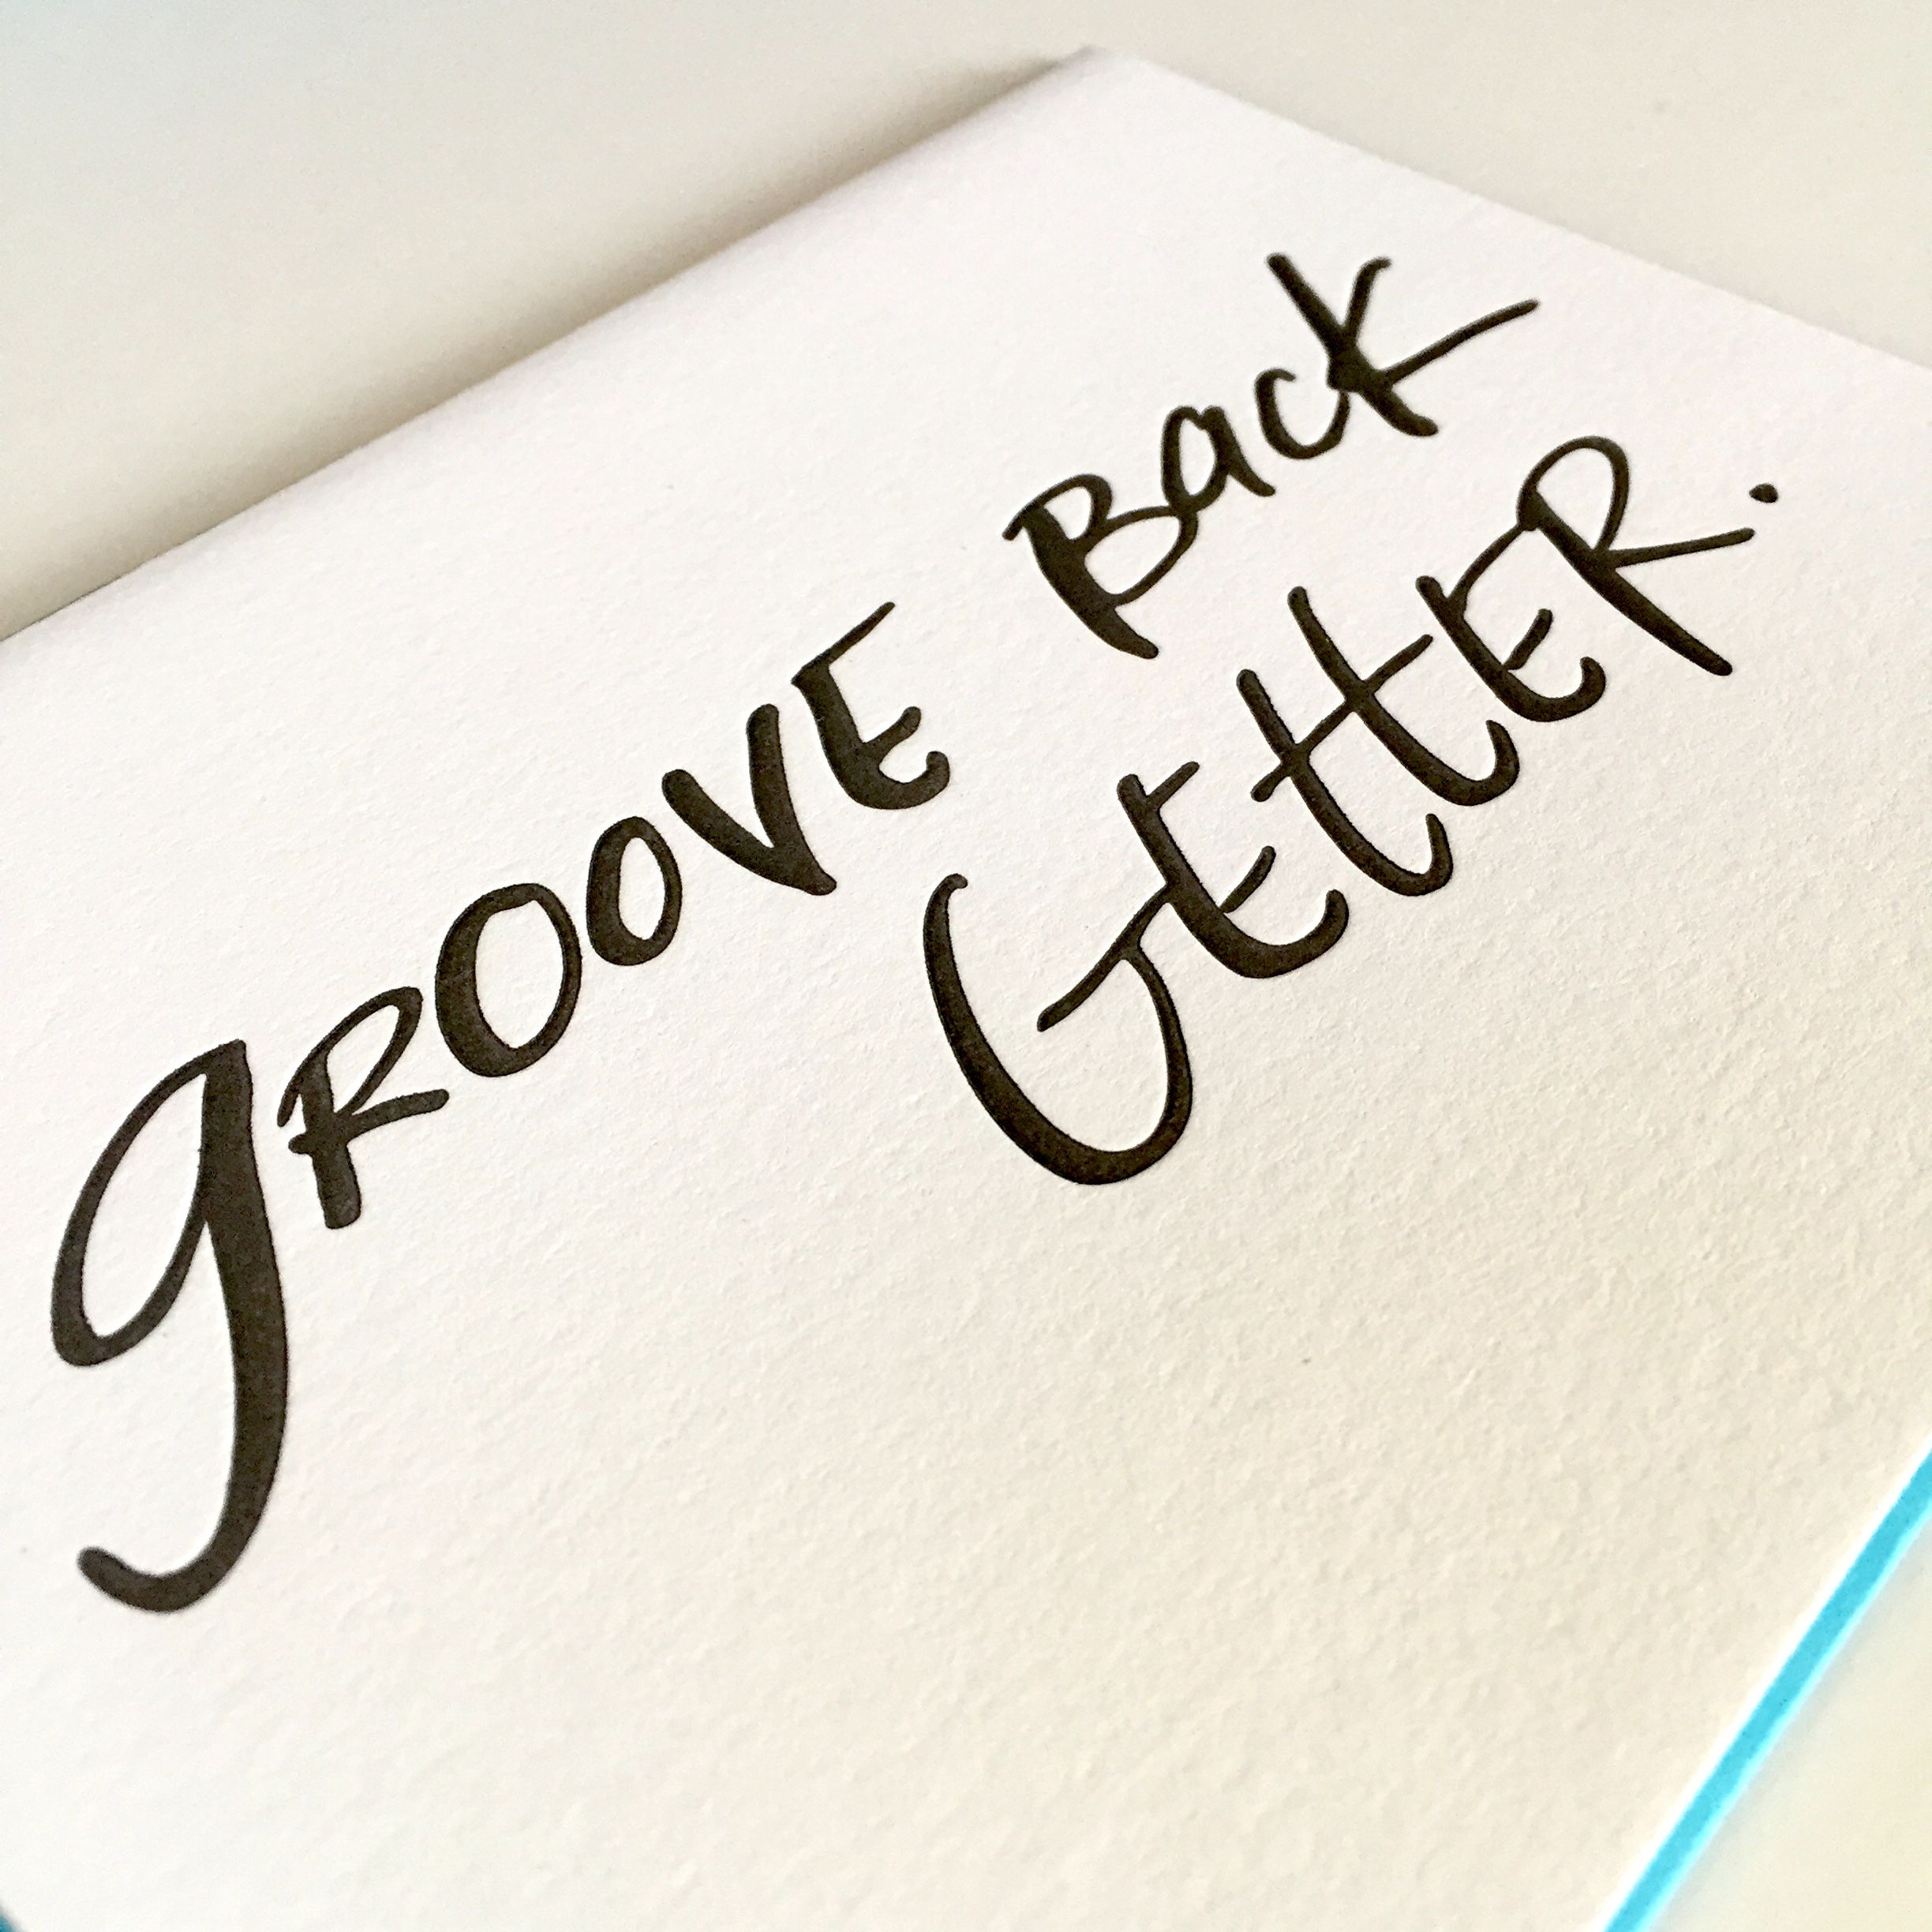 gROOVE BacK
GEttER.